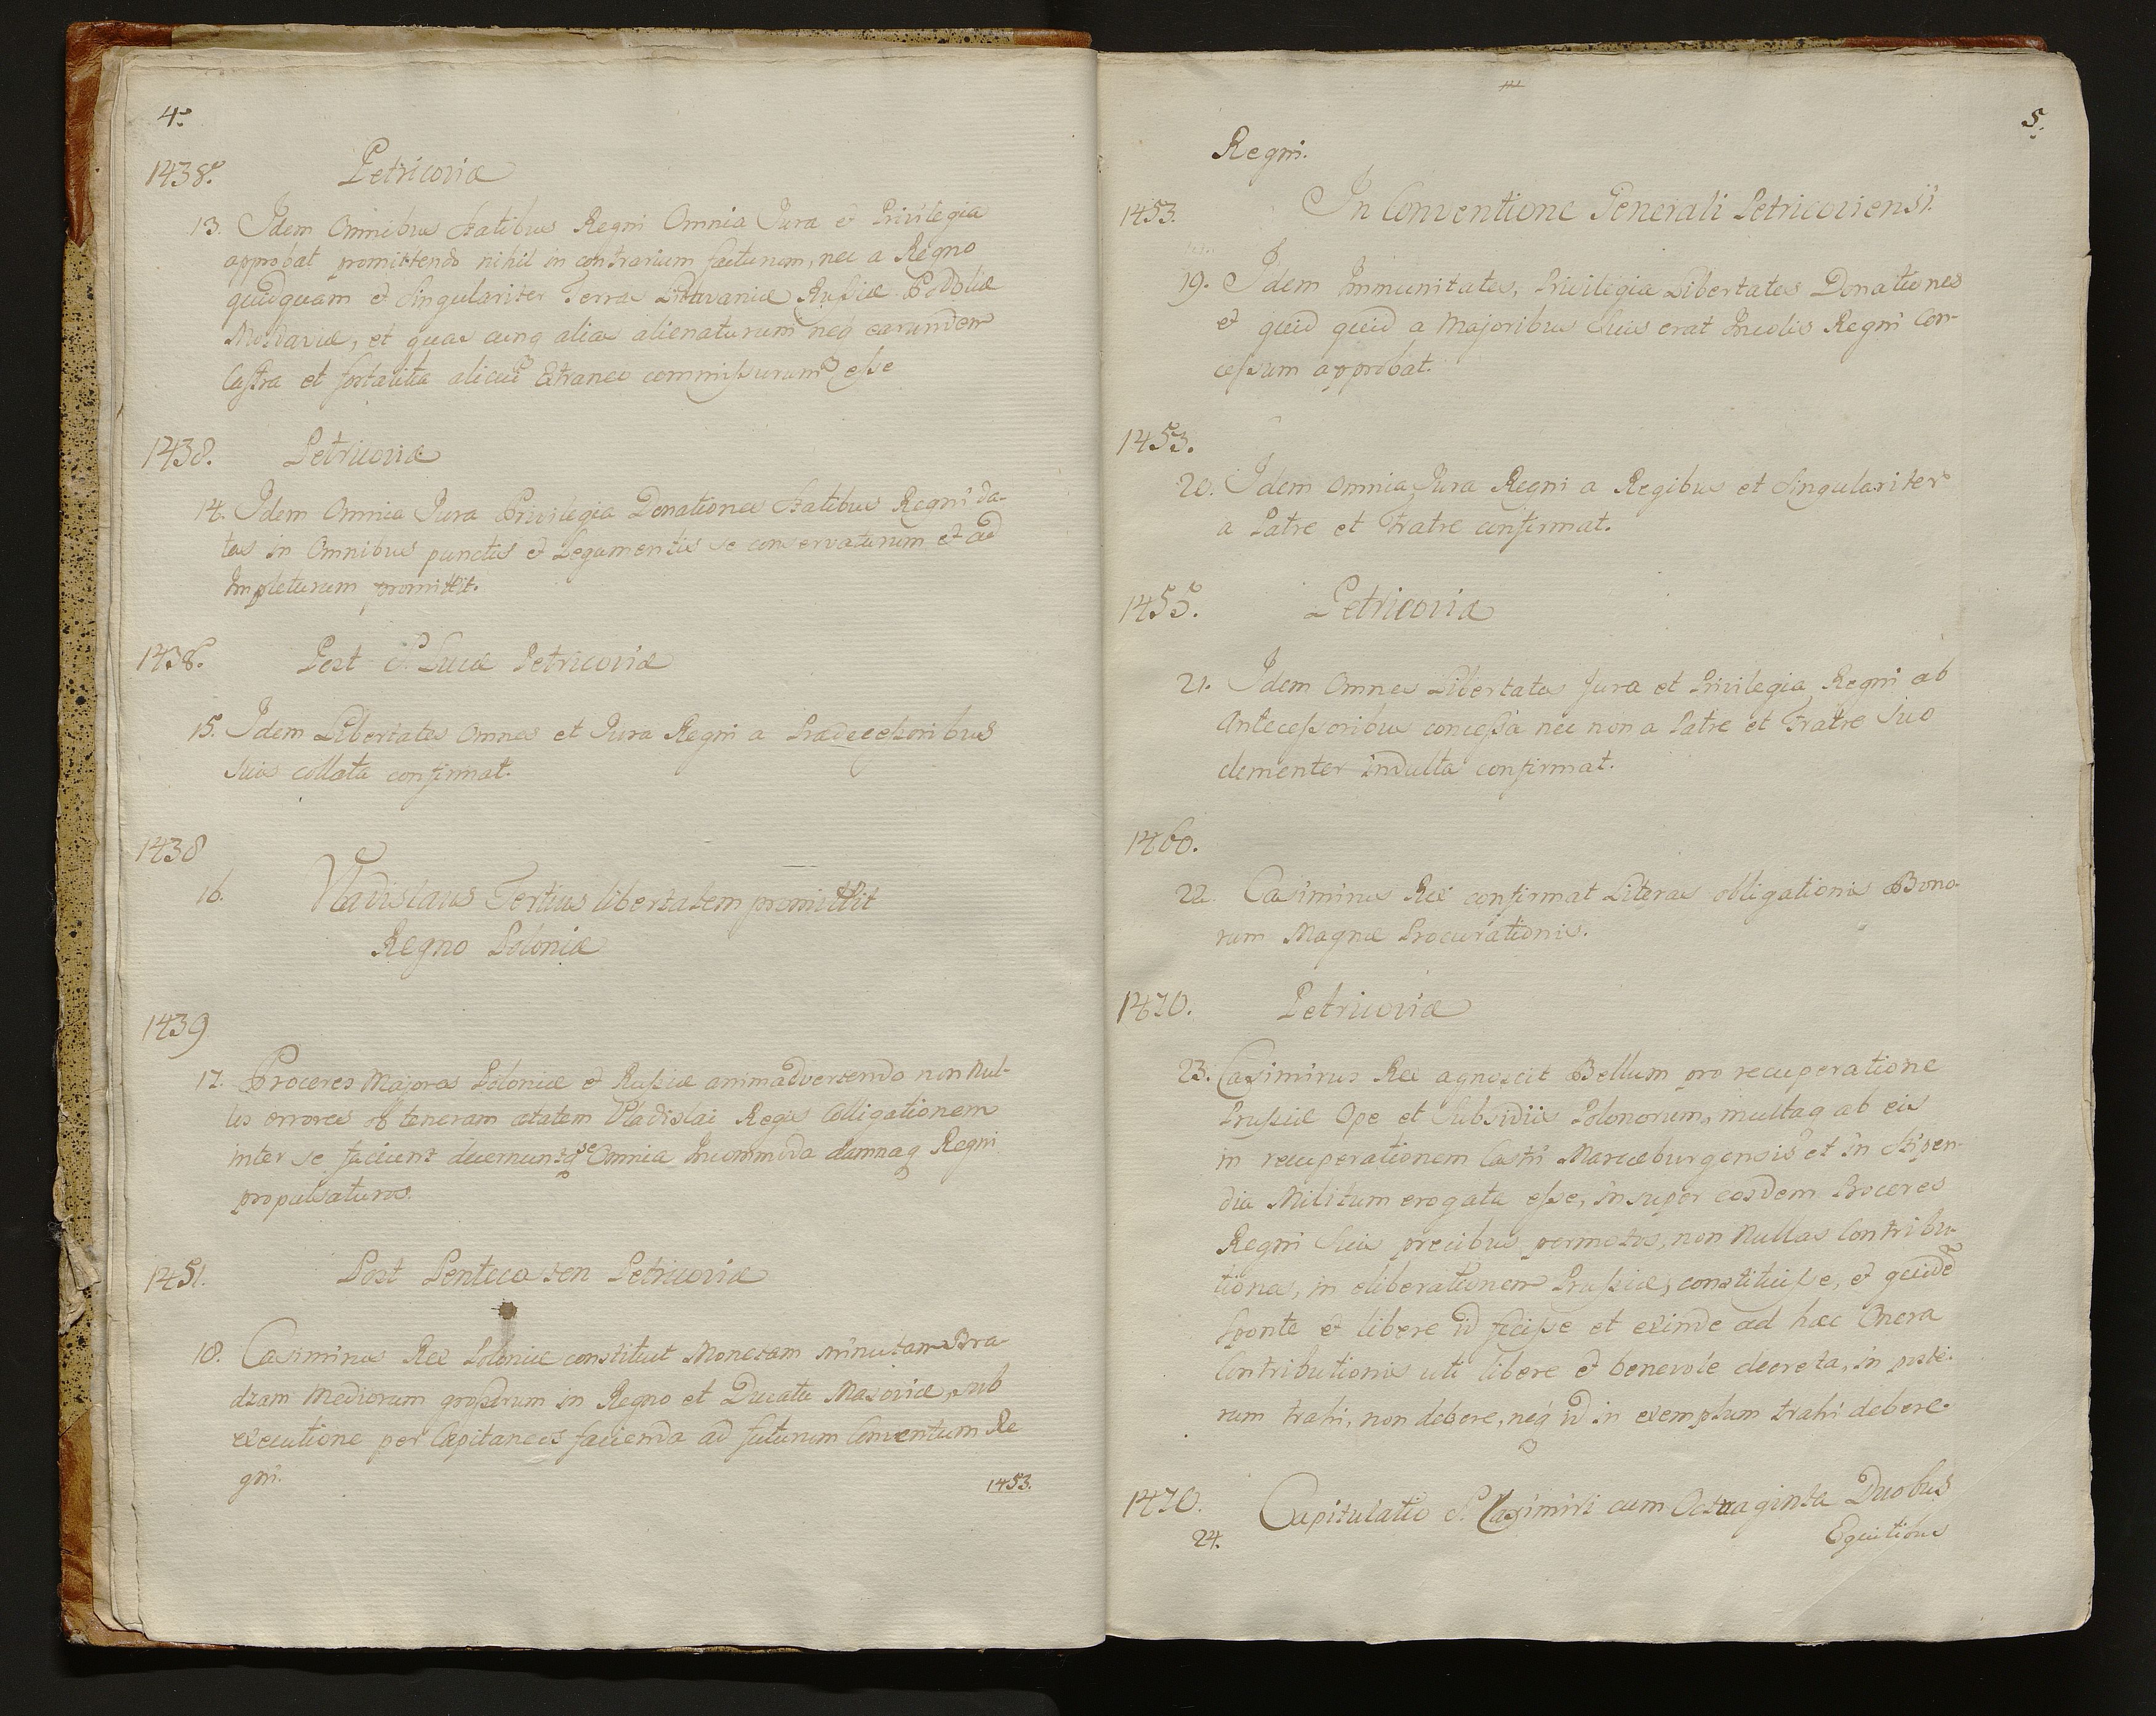 4.
1438. Petricoviæ
13. Idem Omnibus Statibus Regni Omnia Jura et Privilegia
approbat promittendo nihil in contrarium facturum, nec a Regno
quidquam et Singulariter Terras Litavaniæ Russiæ Podoliæ
Moldaviæ, et quas cunq alias alienaturum neq earundem
Castra et fortalitia alicui Extraneo commissurum esse
1438. Petricoviæ
14. Idem Omnia Jura Privilegia Donationes Statibus Regni da-
tas in Omnibus punctis et Legamentis se conservaturum et ad
Impleturum promittit.
1438. Post S. Lucæ Petricoviæ
15. Idem Libertates Omnes et Jura Regni a Prædecessoribus
suis collata confirmat.
1438
16. Vladislaus Tertius libertatem promittit
Regno Poloniæ
1439
17. Proceres Majores Poloniæ et Russiæ animadvertendo non nul-
los errores ob teneram ætatem Vladislai Regis Colligationem
inter se faciunt decernuntq se Omnia Incommoda damnaq Regni
propulsaturos.
1451. Post Pentecosten Petricoviæ
18. Casimirus Rex Poloniæ constituit Monetam minutam
dzam Mediorum grossorum in Regno et Ducatu Masoviæ, sub
executione per Capitaneos facienda ad futurum Conventum Re
gni.
1453.
5.
Regni.
1453. In Conventione Generali Petricoviensi.
19. Idem Immunitates, Privilegia Libertates Donationes
et quid quid a Majoribus Suis erat Incolis Regni Con-
cessum approbat.
1453.
20. Idem Omnia Jura Regni a Regibus et Singulariter
a Patre et Fratre confirmat.
1455. Petricoviæ
21. Idem Omnes Libertates Jura et Privilegia Regni ab
Antecessoribus concessa nec non a Patre et Fratre Suo
clementer indulta confirmat.
1460.
22. Casimirus Rex confirmat Literas obligationis Bono-
rum Magnæ Procurationis.
1470. Petricoviæ
23. Casimirus Rex agnoscit Bellum pro recuperatione
Prussiæ Ope et Subsidiis Polonorum, multaq ab eis
in recuperationem Castri Marieburgensis et in Stipen-
dia Militum erogata esse, insuper eosdem Proceres
Regni Suis precibus permotos, non Nullas Contribu-
tiones, in eliberationem Prussiæ, constituisse, et quidē
Sponte et libere id fecisse et exinde ad hæc Onera
Contributionis uti libere et benevole decreta, in poste-
rum trahi, non debere, neq id in exemplum trahi debere.
1470.
24. Capitulatio S. Casimiri cum Octuaginta Duobus
Equitibus